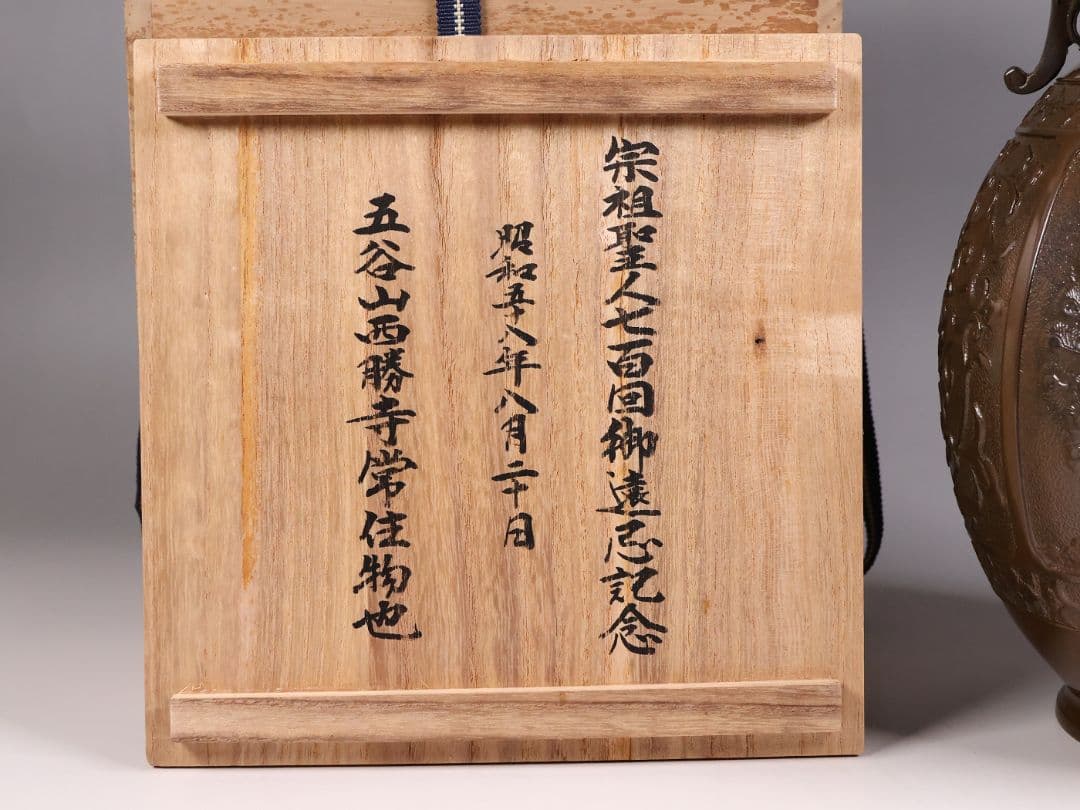 宗祖聖人七百回御遠忌記念
昭和五十八年八月二十日
五谷山西勝寺常住物也